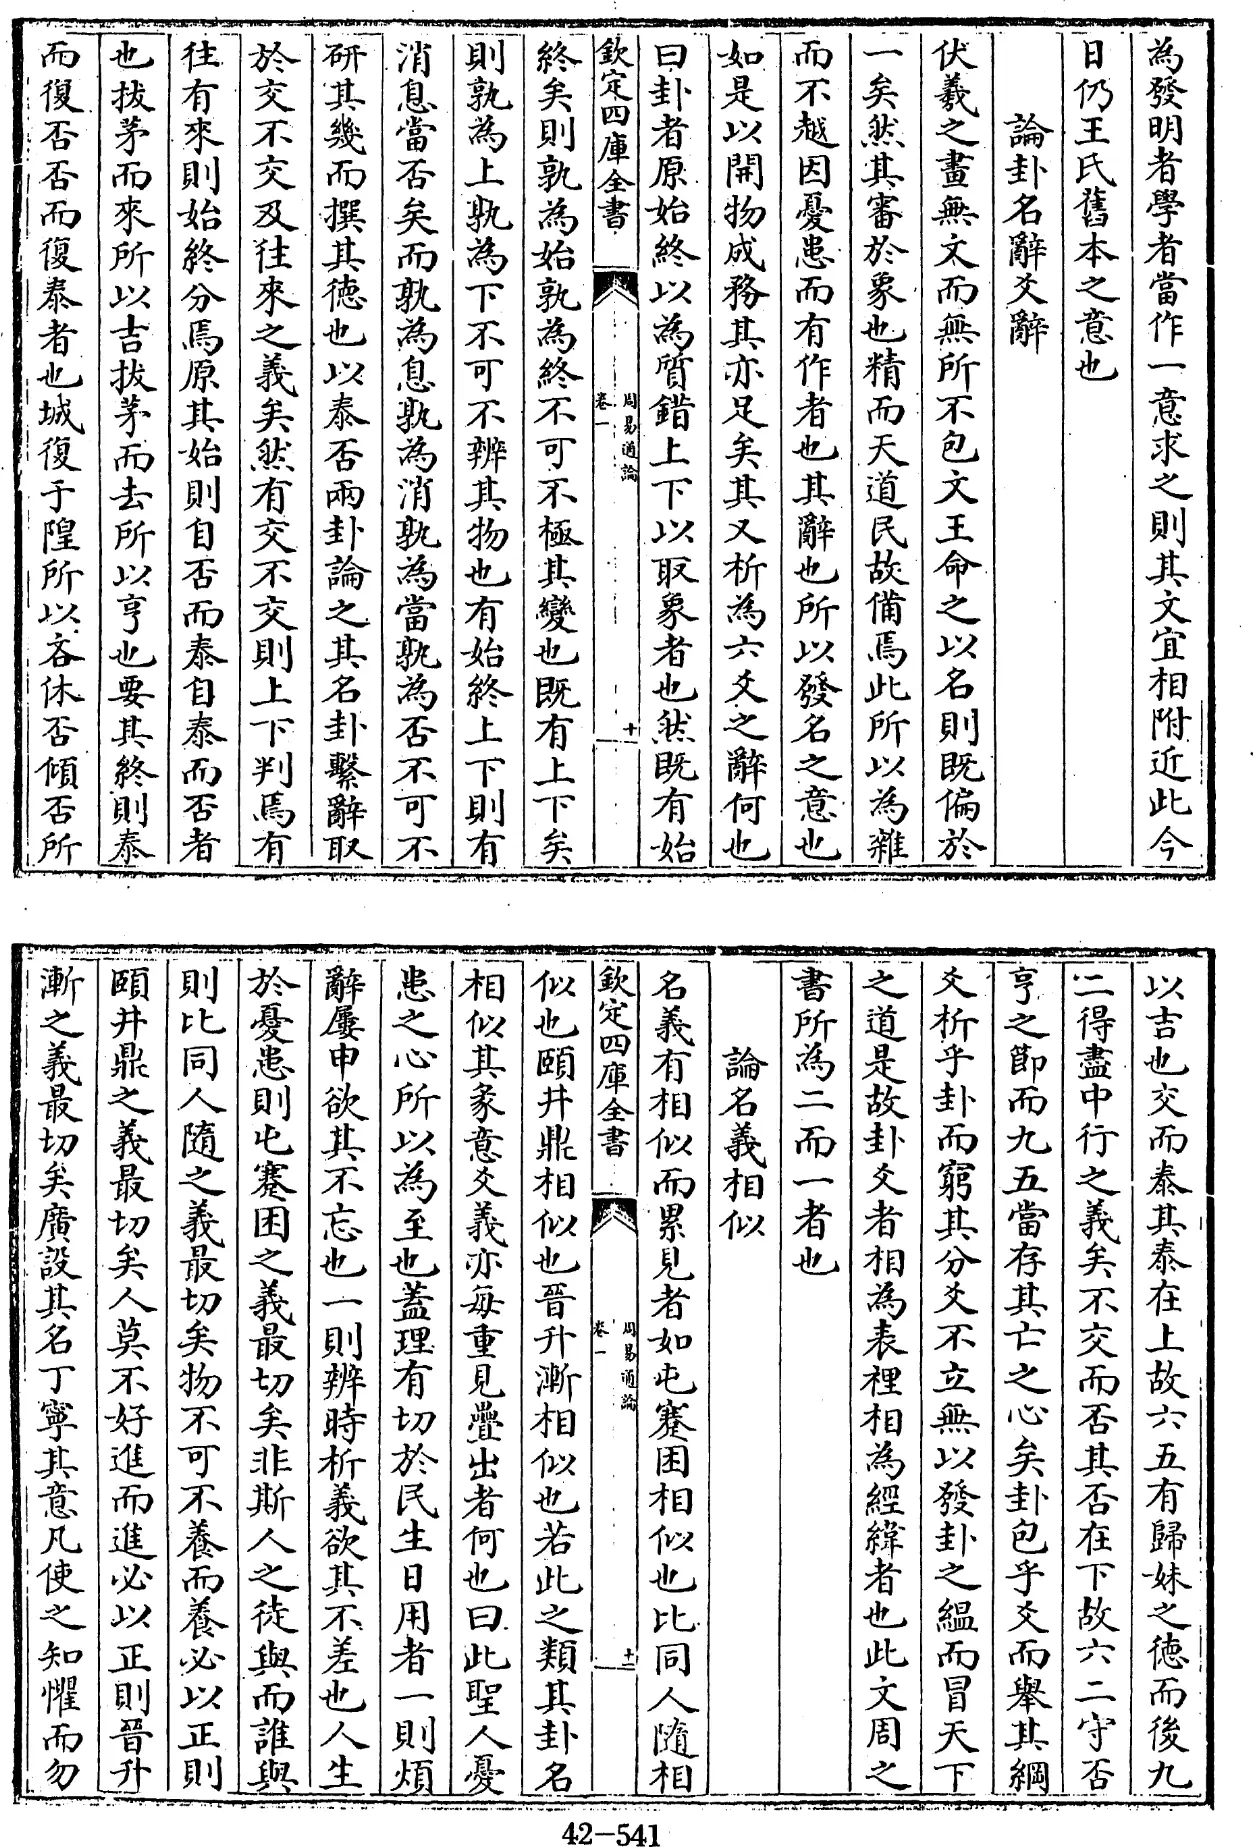 為發明者學者當作一意求之則其文宜相附近此今
日仍王氏舊本之意也
論卦名辭爻辭
伏羲之畫無文而無所不包文王命之以名則既偏於
一矣然其審於象也精而天道民故備焉此所以為雜
而不越因憂患而有作者也其辭也所以發名之意也
如是以開物成務其亦足矣其又析為六爻之辭何也
曰卦者原始終以為質錯上下以取象者也然既有始
欽定四庫全書
周易通論
卷一
十
終矣則孰為始孰為終不可不極其變也既有上下矣
則孰為上孰為下不可不辨其物也有始終上下則有
消息當否矣而孰為息孰為消孰為當孰為否不可不
研其幾而撰其德也以泰否兩卦論之其名卦繫辭取
於交不交及往來之義矣然有交不交則上下判焉有
往有來則始終分焉原其始則自否而泰自泰而否者
也拔茅而來所以吉拔茅而去所以亨也要其終則泰
而復否否而復泰者也城復于隍所以吝休否傾否所
以吉也交而泰其泰在上故六五有歸妹之德而後九
二得盡中行之義矣不交而否其否在下故六二守否
亨之節而九五當存其亡之心矣卦包乎爻而舉其綱
爻析乎卦而窮其分爻不立無以發卦之縕而冒天下
之道是故卦爻者相為表裡相為經緯者也此文周之
書所為二而一者也
論名義相似
名義有相似而累見者如屯蹇困相似也比同人隨相
欽定四庫全書
周易通論
卷一
十一
似也頤井鼎相似也晉升漸相似也若此之類其卦名
相似其彖意爻義亦每重見疊出者何也曰此聖人憂
患之心所以為至也蓋理有切於民生日用者一則煩
辭屢申欲其不忘也一則辨時析義欲其不差也人生
於憂患則屯蹇困之義最切矣非斯人之徒與而誰與
則比同人隨之義最切矣物不可不養而養必以正則
頤井鼎之義最切矣人莫不好進而進必以正則晉升
漸之義最切矣廣設其名丁寧其意凡使之知懼而勿
42-541